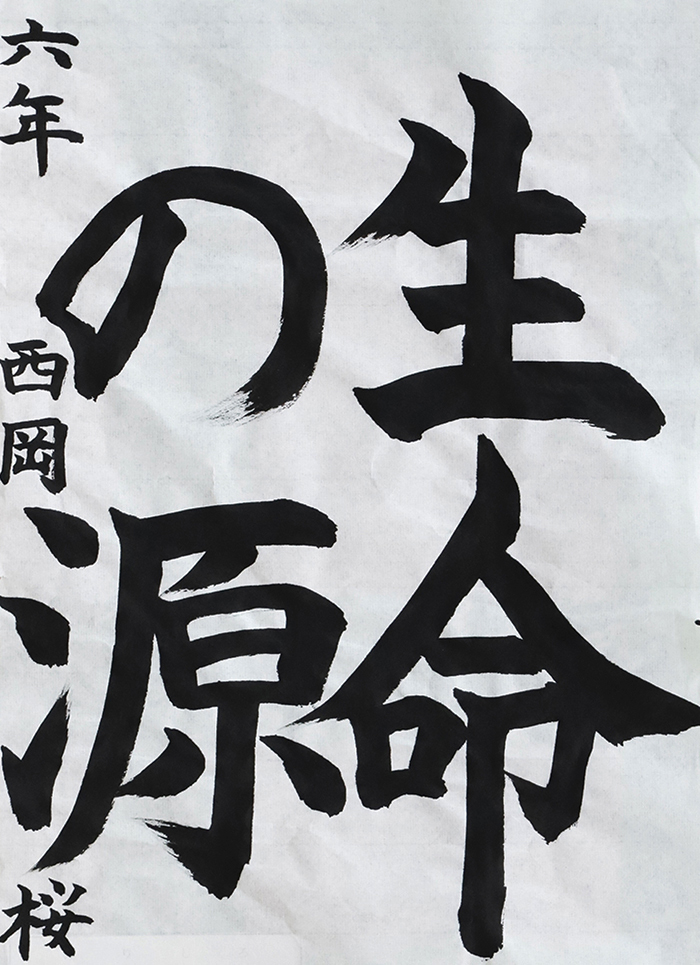 生命
の源
六年 西岡 桜